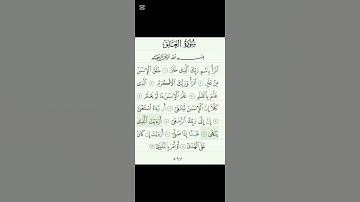 سُورَةُ الْعَلَقِ
بِسْمِ اللَّهِ الرَّحْمَٰنِ الرَّحِيمِ
اقْرَأْ بِاسْمِ رَبِّكَ الَّذِي خَلَقَ ١ خَلَقَ الْإِنسَٰنَ
مِنْ عَلَقٍ ٢ اقْرَأْ وَرَبُّكَ الْأَكْرَمُ ٣ الَّذِي
عَلَّمَ بِالْقَلَمِ ٤ عَلَّمَ الْإِنسَٰنَ مَا لَمْ يَعْلَمْ ٥
كَلَّا إِنَّ الْإِنسَٰنَ لَيَطْغَىٰ ٦ أَن رَّءَاهُ اسْتَغْنَىٰ
٧ إِنَّ إِلَىٰ رَبِّكَ الرُّجْعَىٰ ٨ أَرَءَيْتَ الَّذِي
يَنْهَىٰ ٩ عَبْدًا إِذَا صَلَّىٰ ١٠ أَرَءَيْتَ إِن كَانَ
عَلَى الْهُدَىٰ ١١ أَوْ أَمَرَ بِالتَّقْوَىٰ ١٢
٥٩٧